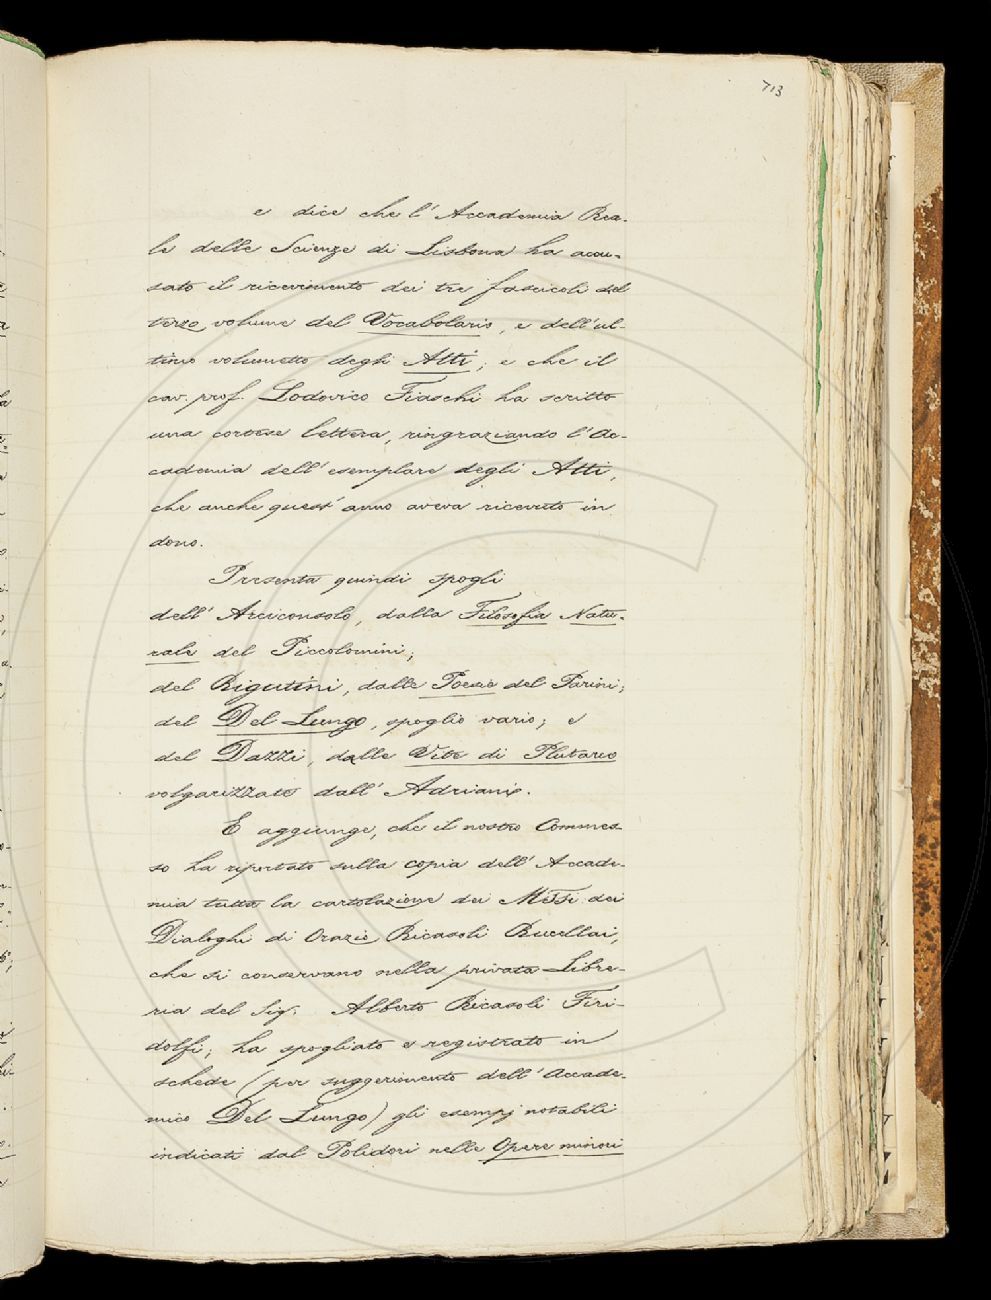 713
e dice che l'Accademia Rea-
le delle Scienze di Lisbona ha accu-
sato il ricevimento dei tre fascicoli del
terzo volume del Vocabolario, e dell'ul-
timo volumetto degli Atti; e che il
cav. prof. Lodovico Fiaschi ha scritto
una cortese lettera, ringraziando l'Ac-
cademia dell'esemplare degli Atti,
che anche quest'anno aveva ricevuto in
dono.
Presenta quindi spogli
dell'Arciconsolo, dalla Filosofia Natu-
rale del Piccolomini;
del Rigutini, dalle Poesie del Parini;
del Del Lungo, spoglio vario; e
del Dazzi, dalle Vite di Plutarco
volgarizzate dall'Adriani.
E aggiunge, che il nostro Commes-
so ha riportato sulla copia dell'Accade-
mia tutta la cartolazione dei MSSi dei
Dialoghi di Orazio Ricasoli Rucellai,
che si conservano nella privata Libre-
ria del Sig. Alberto Ricasoli Firi-
dolfi; ha spogliato e registrato in
schede (per suggerimento dell'Accade-
mico Del Lungo) gli esempj notabili
indicati dal Polidori nelle Opere minori